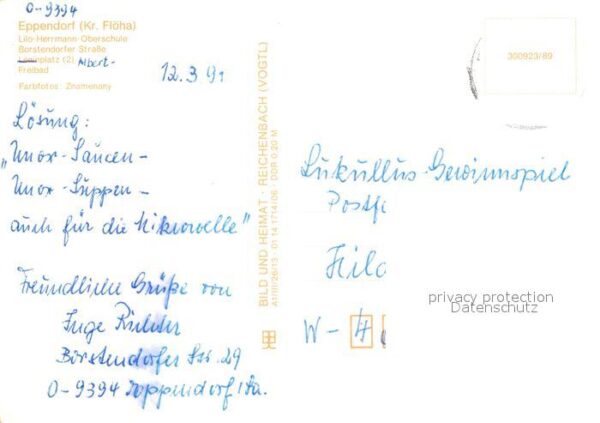 O-9394
Eppendorf (Kr. Flöha)
Lilo-Herrmann-Oberschule
Borstendorfer Straße
platz (2) Albert-
Freibad
Farbfotos: Znamenany
12.3.91
Lösung:
"Unox-Saucen-
Unox-Suppen-
auch für die Mikrowelle"
Freundliche Grüße von
Inge Richter
Borstendorfer Str. 29
O-9394 Eppendorf/Sa.
BILD UND HEIMAT · REICHENBACH (VOGTL)
A1/III/26/13 · 01 14 1714/06 · DDR 0,20 M
300923/89
Lukullus-Gewinnspiel
Postf
Hild
W-4
privacy protection
Datenschutz